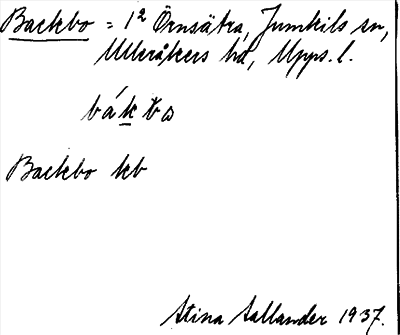 Backbo = 1² Örnsätra, Jumkils sn,
Ulleråkers hd, Upps. l.
bák bo
Backbo kb
Stina Sallander 1937.